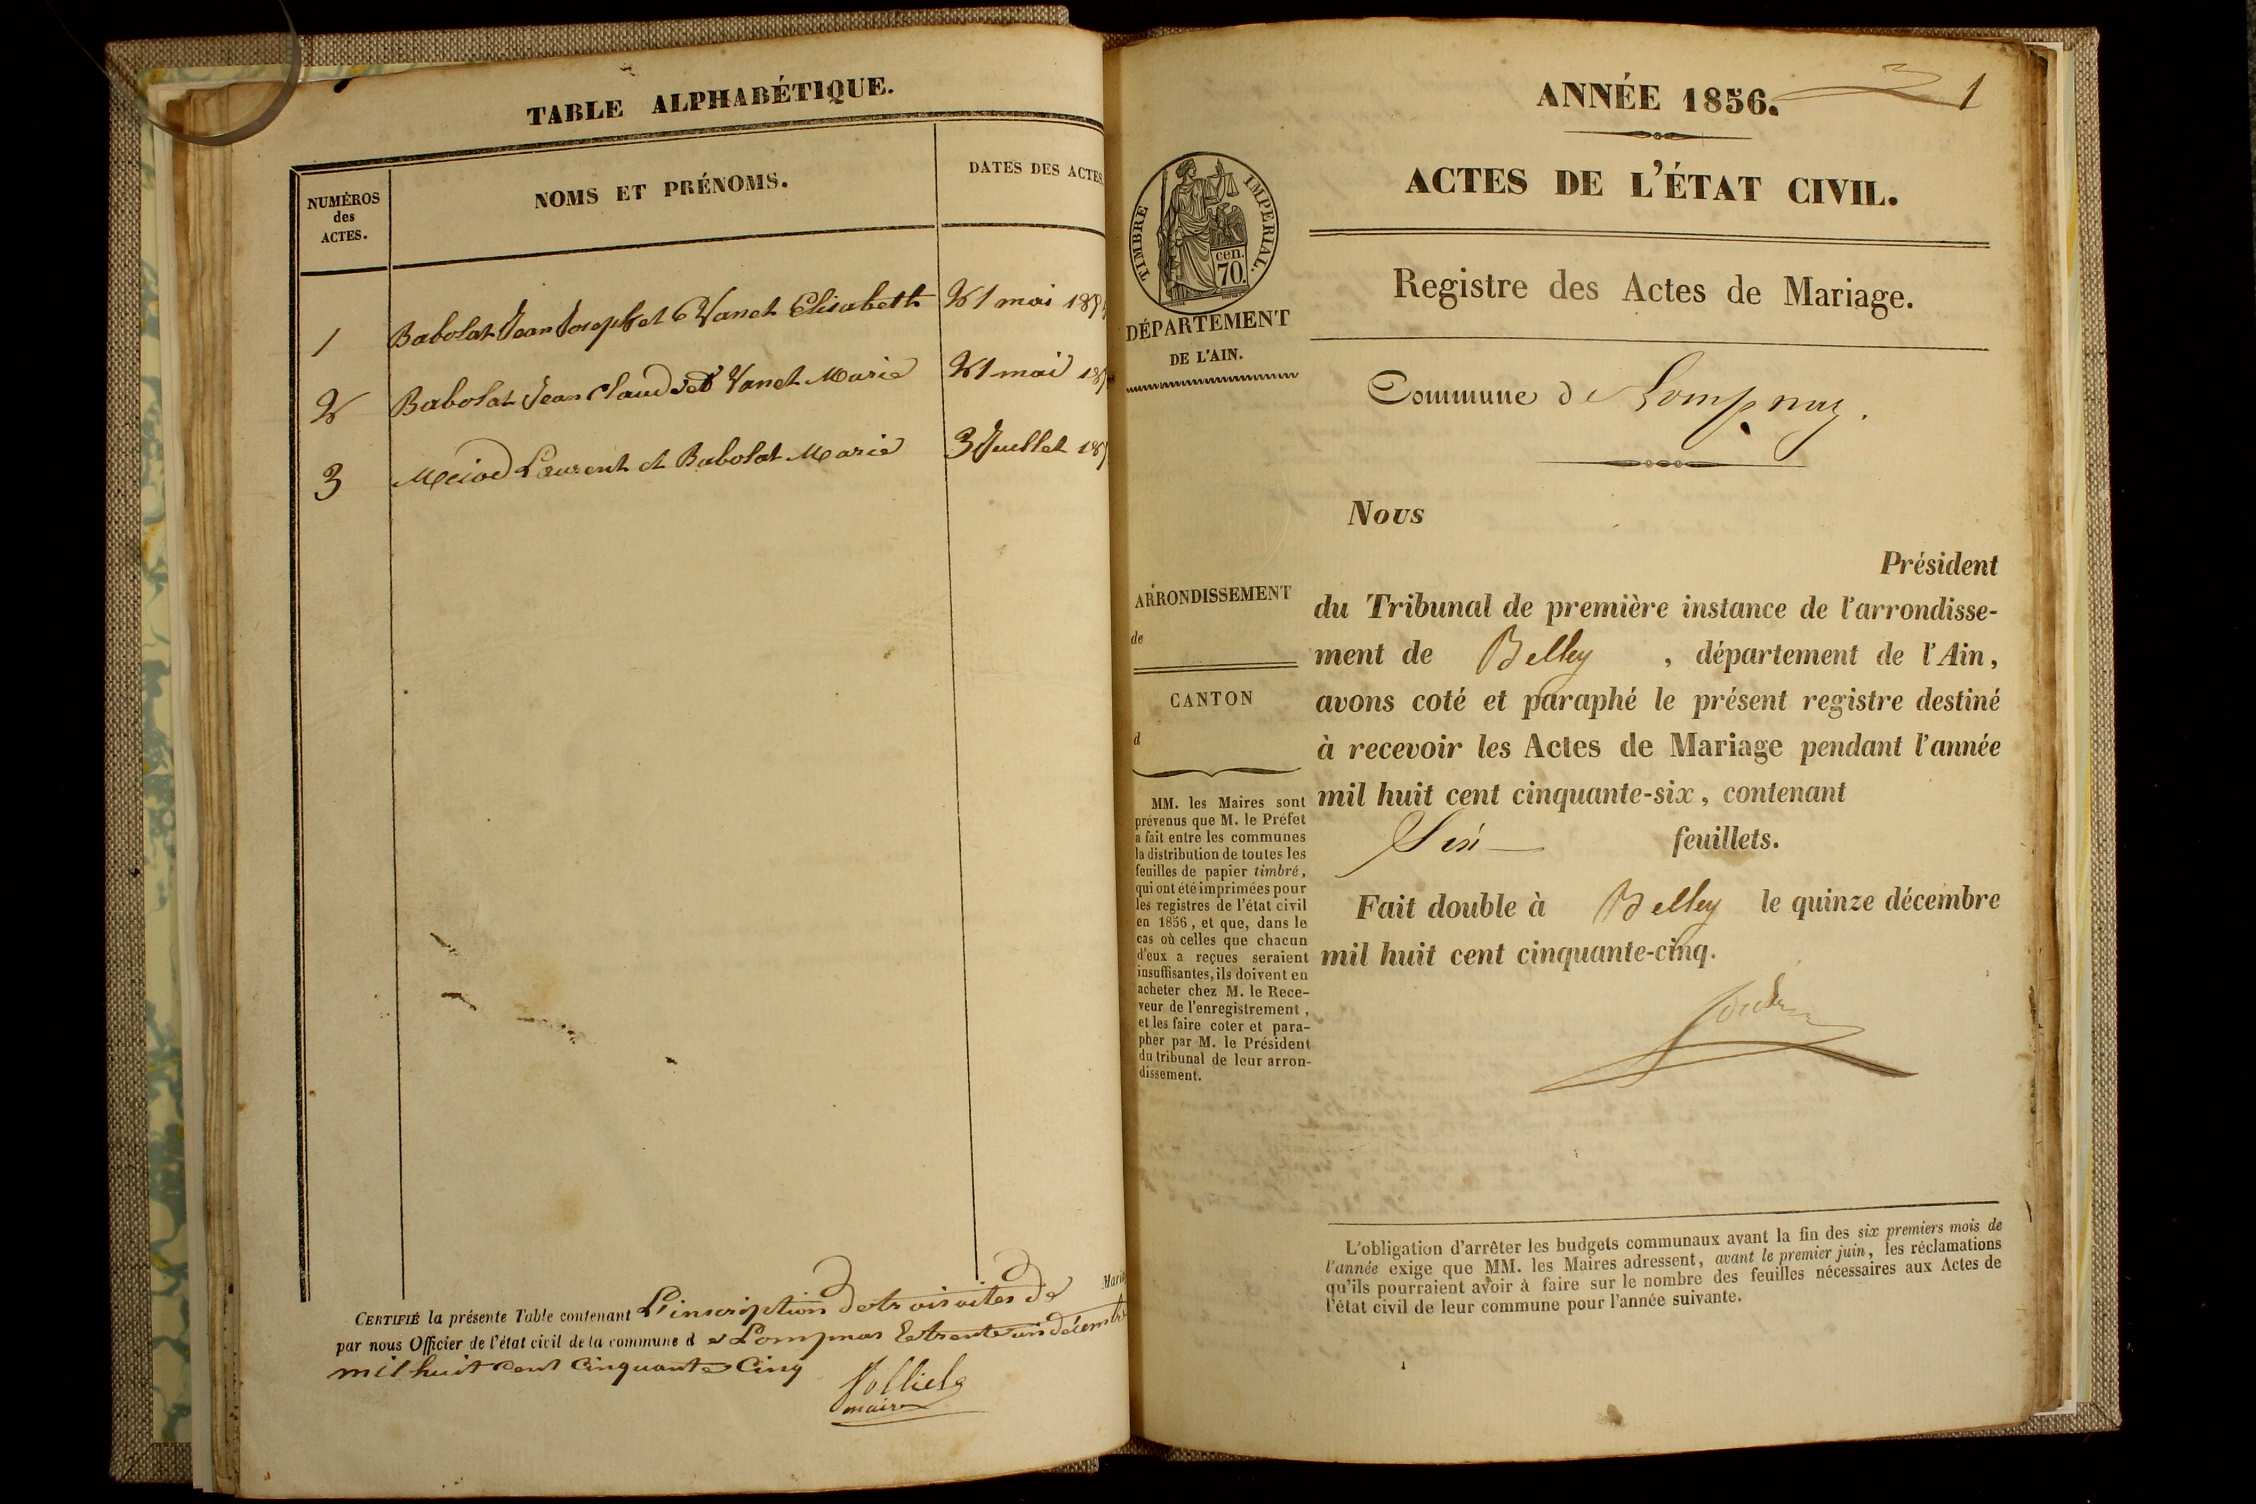 TABLE ALPHABÉTIQUE.
NUMÉROS
des
ACTES.
NOMS ET PRÉNOMS.
DATES DES ACTES
1 Babolat Jean Joseph et Vanet Elisabeth 21 mai 185
2 Babolat Jean Claude et Vanet Marie 21 mai 18
3 Laurent et Babolat Marie 3 Juillet 18
CERTIFIÉ la présente Table contenant L'inscription de trois actes de Maria
par nous Officier de l'état civil de la commune d e Lompnas le trente un décembre
mil huit cent cinquante Cinq
maire
ANNÉE 1856.
1
ACTES DE L'ÉTAT CIVIL.
TIMBRE IMPERIAL.
cen.
70.
DÉPARTEMENT
DE L'AIN.
Registre des Actes de Mariage.
Commune de Lompnas.
ARRONDISSEMENT
de
CANTON
d
MM. les Maires sont
prévenus que M. le Préfet
a fait entre les communes
la distribution de toutes les
feuilles de papier timbré,
qui ont été imprimées pour
les registres de l'état civil
en 1856, et que, dans le
cas où celles que chacun
d'eux a reçues seraient
insuffisantes, ils doivent en
acheter chez M. le Rece-
veur de l'enregistrement,
et les faire coter et para-
pher par M. le Président
du tribunal de leur arron-
dissement.
Nous
Président
du Tribunal de première instance de l'arrondisse-
ment de Belley, département de l'Ain,
avons coté et paraphé le présent registre destiné
à recevoir les Actes de Mariage pendant l'année
mil huit cent cinquante-six, contenant
Six feuillets.
Fait double à Belley le quinze décembre
mil huit cent cinquante-cinq.
L'obligation d'arrêter les budgets communaux avant la fin des six premiers mois de
l'année exige que MM. les Maires adressent, avant le premier juin, les réclamations
qu'ils pourraient avoir à faire sur le nombre des feuilles nécessaires aux Actes de
l'état civil de leur commune pour l'année suivante.